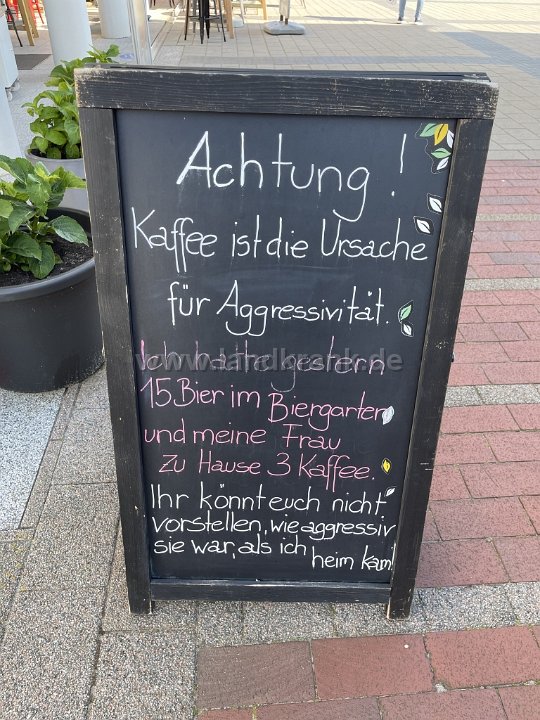 Achtung!
Kaffee ist die Ursache
für Aggressivität.
Ich hatte gestern
www.landkrank.de
15 Bier im Biergarten
und meine Frau
zu Hause 3 Kaffee.
Ihr könnt euch nicht
vorstellen, wie aggressiv
sie war, als ich heim kam!